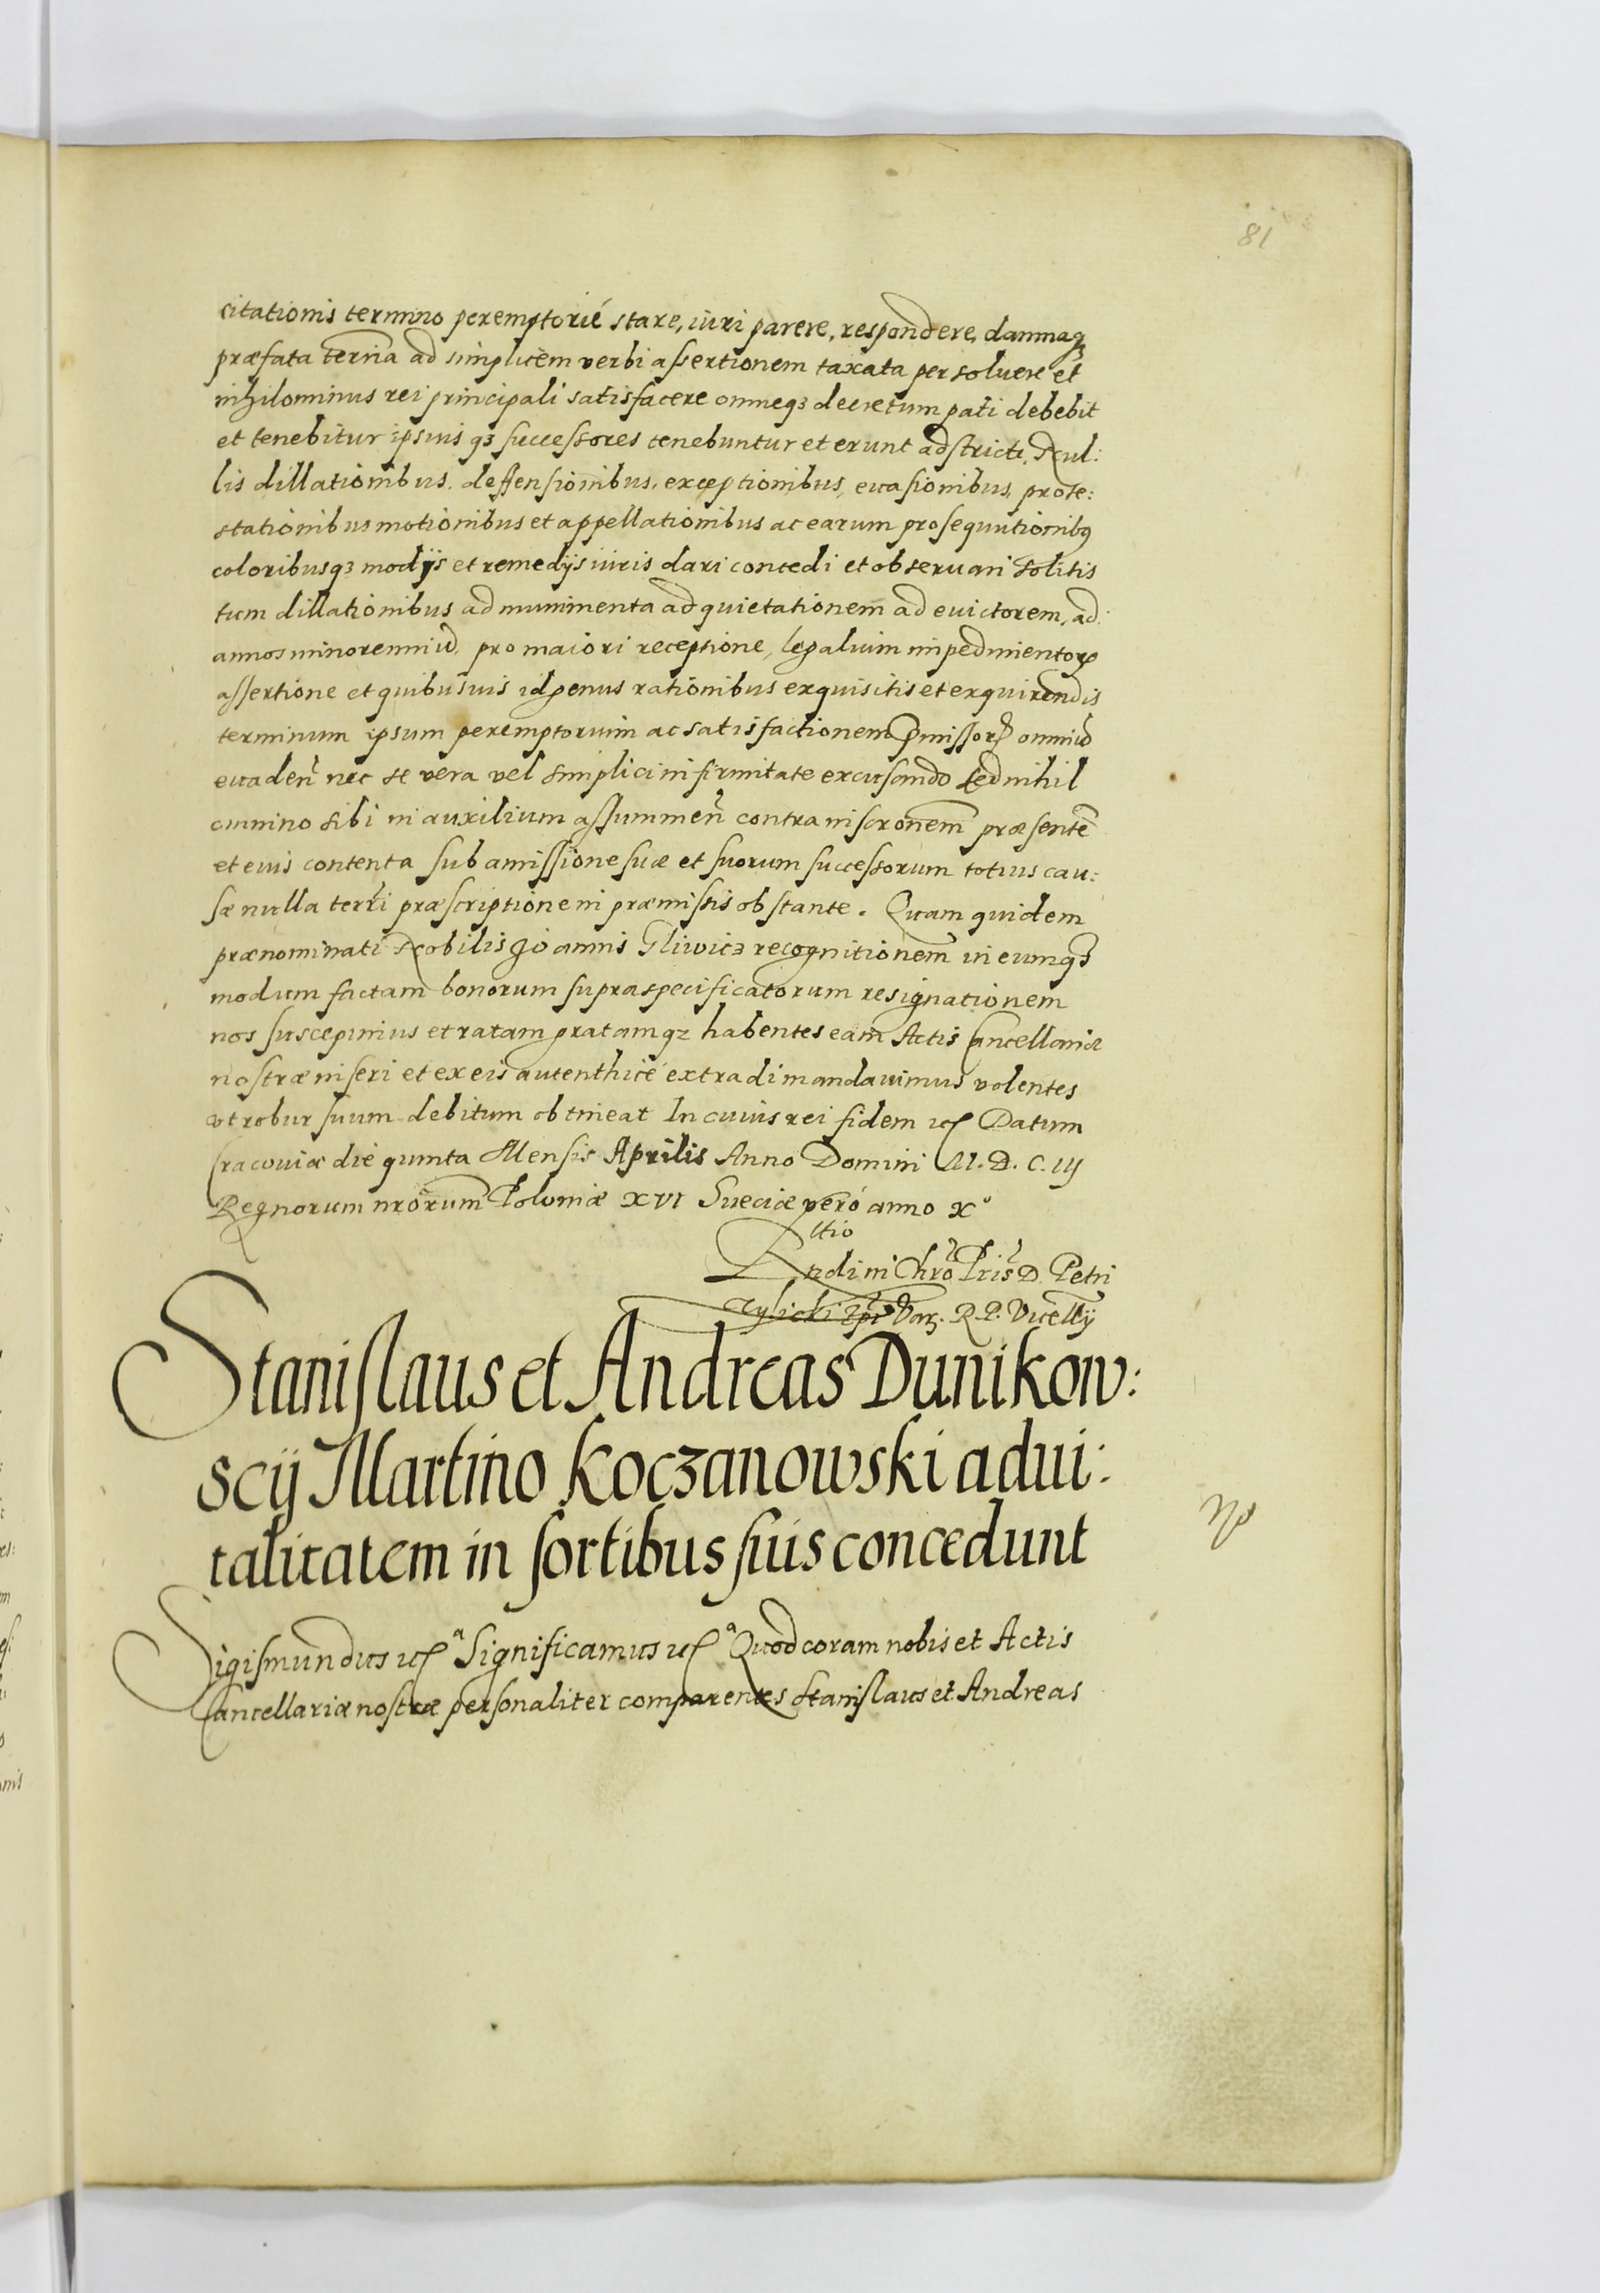 81
citationis termino peremptorié stare, iuri parere, respondere, damnaq3
præfata terna ad simplicem verbi assertionem taxata persoluere et
nihilominus rei principali satisfacere omneq3 decretum pati debebit
et tenebitur ipsius q3 successores tenebuntur et erunt adstricti, Nul:
lis dillationibus, deffensionibus, exceptionibus, euasionibus, prote:
stationibus motionibus et appellationibus ac earum prosequutionibq
coloribusq3 modijs et remedijs iuris dari concedi et obseruari solitis
tum dillationibus ad munimenta ad quietationem ad euictorem, ad
annos minorenniũ, pro maiori receptione, legalium impedimentorƶ
assertione et quibusuis id genus rationibus exquisitis et exquirendis
terminum ipsum peremptorium ac satisfactionem p̃missorƶ omniũ
euadeñ nec se vera vel simplici infirmitate excusando sed nihil
omnino sibi in auxilium assummeñ contra inscr̃onem præsentẽ
et eius contenta sub amissione suæ et suorum successorum totius cau:
sæ nulla terr̃i præscriptione in præmissis obstante. Quam quidem
prænominati Nobilis Joannis Gliwicz recognitionem in eumq3
modum factam bonorum supraspecificatorum resignationem
nos suscepimus et ratam gratamq3 habentes eam Actis Cancellariæ
nostræ inseri et ex eis autenthicé extradi mandauimus volentes
vt robur suum debitum obtineat In cuius rei fidem etc Datum
Cracouiæ die quinta Mensis Aprilis Anno Domini M.D.C.iij
Regnorum nr̃orum Poloniæ XVI Sueciæ veró anno X°
R̃ltio
Rndi in Chr̃o Pris D. Petri
Tylicki Ep̃i Var. R. P. Vicellij
Stanislaus et Andreas Dunikow:
scij Martino Koczanowski aduï:
talitatem in sortibus suis concedunt
Sigismundus etc ª Significamus etc ª Quod coram nobis et Actis
Cancellariæ nostræ personaliter comparentes Stanislaus et Andreas